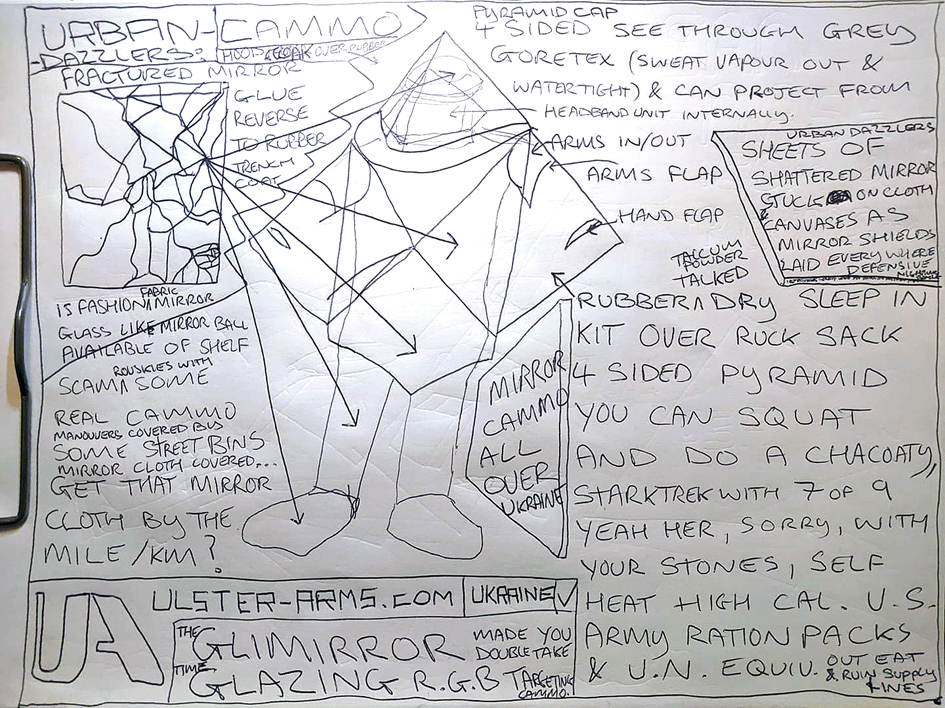 URBAN-CAMMO
DAZZLERS:
HOODS & CLOAK OVER RUBBER
FRACTURED MIRROR
GLUE
REVERSE
TO RUBBER
TRENCH
COAT
PYRAMID CAP
4 SIDED SEE THROUGH GREY
GORETEX (SWEAT VAPOUR OUT &
WATERTIGHT) & CAN PROJECT FROM
HEADBAND UNIT INTERNALLY.
ARMS IN/OUT
ARMS FLAP
HAND FLAP
URBAN DAZZLERS
SHEETS OF
SHATTERED MIRROR
STUCK ON CLOTH
& CANVASES AS
MIRROR SHIELDS
LAID EVERY WHERE
DEFENSIVE
TALCUM
POWDER
TALKED
RUBBER/DRY SLEEP IN
KIT OVER RUCK SACK
4 SIDED PYRAMID
YOU CAN SQUAT
AND DO A CHACOATY,
STARKTREK WITH 7 OF 9
YEAH HER, SORRY, WITH
YOUR STONES, SELF
HEAT HIGH CAL. U.S.
ARMY RATION PACKS
& U.N. EQUIV. OUT EAT
& RUIN SUPPLY
LINES
IS FASHION FABRIC MIRROR
GLASS LIKE MIRROR BALL
AVAILABLE OF SHELF
ROUSKIES WITH
SCAM, SOME
REAL CAMMO
MANOUVERS COVERED BUS
SOME STREET BINS
MIRROR CLOTH COVERED...
GET THAT MIRROR
CLOTH BY THE
MILE/KM?
MIRROR
CAMMO
ALL
OVER
UKRAINE
UA
ULSTER-ARMS.COM
UKRAINE V
THE GLIMIRROR
MADE YOU
DOUBLE TAKE
TIME GLAZING R.G.B TARGETING
CAMMO.